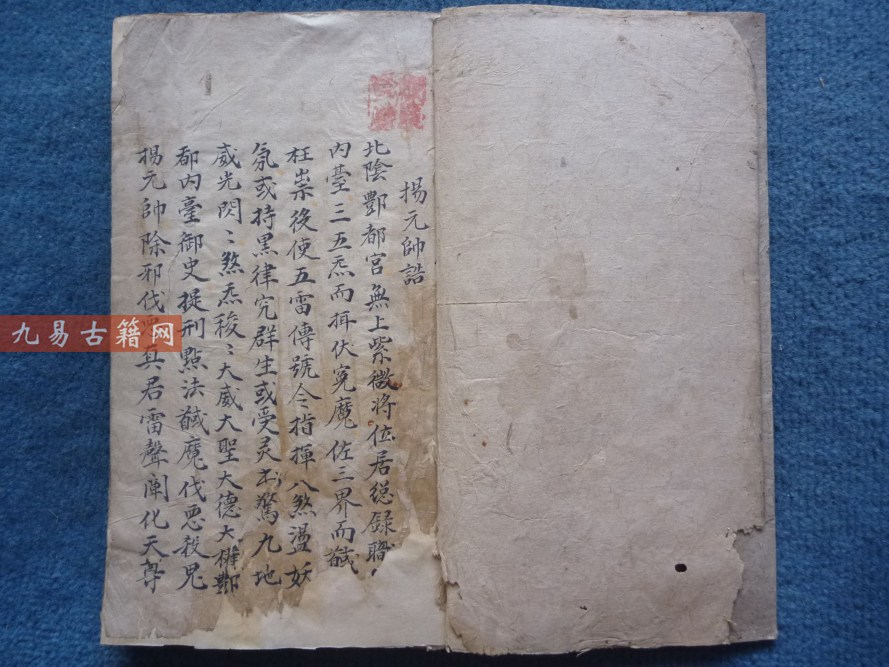 揚元帥誥
北陰酆都宮無上紫微將位居總錄職
内臺三五炁而揖伏寃魔佐三界而馘
枉祟後使五雷傳號令指揮八煞盪妖
氛或持黑律究群生或受灵驚九地
威光閃〻煞炁稜〻大威大聖大德大權酆
都内臺御史提刑㸃法馘魔伐悪殺鬼
揚元帥除邪伐真君雷聲闡化天尊
九易古籍网